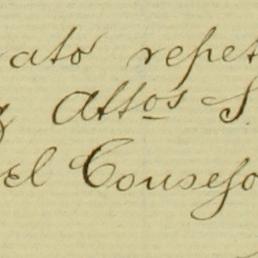 ato repet
Attos S.
el Consejo